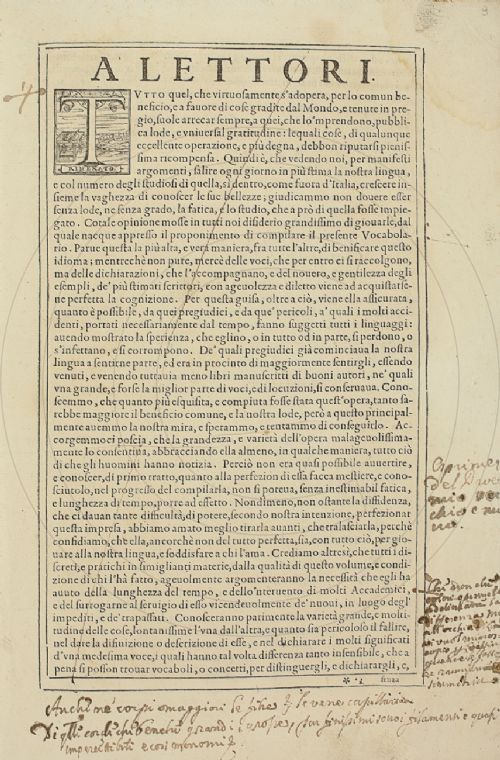 A LETTORI.
TVTTO quel, che virtuosamente s'adopera, per lo comun be-
neficio, e a fauore di cose gradite dal Mondo, e tenute in pre-
gio, suole arrecar sempre, a quei, che lo'mprendono, pubbli-
ca lode, e vniuersal gratitudine: lequali cose, di qualunque
eccellente operazione, e più degna, debbon riputarsi pienis-
sima ricompensa. Quindi è, che vedendo noi, per manifesti
argomenti, salire ogni giorno in più stima la nostra lingua,
e col numero degli studiosi di quella, sì dentro, come fuora d'Italia, crescere in-
sieme la vaghezza di conoscer le sue bellezze; giudicammo non douere esser
senza lode, ne senza grado, la fatica, e lo studio, che a prò di quella fosse impie-
gato. Cotale opinione mosse in tutti noi disiderio grandissimo di giouarle, dal
quale nacque appresso il proponimento di compilare il presente Vocabola-
rio. Parue questa la più alta, e vera maniera, fra tutte l'altre, di benificare questo
idioma; mentrechè non pure, mercè delle voci, che per entro ei si raccolgono,
ma delle dichiarazioni, che l'accompagnano, e del nouero, e gentilezza degli
esempli, de' più stimati scrittori, con ageuolezza e diletto viene ad acquistarse-
ne perfetta la cognizione. Per questa guisa, oltre a ciò, viene ella assicurata,
quanto è possibile, da que' pregiudici, e da que' pericoli, a' quali i molti acci-
denti, portati necessariamente dal tempo, fanno suggetti tutti i linguaggi:
auendo mostrato la sperienza, che eglino, o in tutto od in parte, si perdono, o
s'infettano, e si corrompono. De' quali pregiudici già cominciaua la nostra
lingua a sentirne parte, ed era in procinto di maggiormente sentirgli, essendo
venuti, e venendo tuttauia meno libri manuscritti di buoni autori, ne' quali
vna grande, e forse la miglior parte di voci, e di locuzioni, si conseruaua. Cono-
scemmo, che quanto più esquisita, e compiuta fosse stata quest'opera, tanto sa-
rebbe maggiore il beneficio comune, e la nostra lode, però a questo principal-
mente auemmo la nostra mira, e sperammo, e tentammo di conseguirlo. Ac-
corgemmoci poscia, che la grandezza, e varietà dell'opera malageuolissima-
mente lo consentiua, abbracciando ella almeno, in qualche maniera, tutto ciò
di che gli huomini hanno notizia. Perciò non era quasi possibile auuertire,
e conoscer, di primo tratto, quanto alla perfezion di essa facea mestiere, e cono-
sciutolo, nel progresso del compilarla, non si potena, senza inestimabil fatica,
e lunghezza di tempo, porre ad effetto. Nondimeno, non ostante la disfidenza,
che ci dauan tante difficultà, di poter, secondo nostra intenzione, perfezionar
questa impresa, abbiamo amato meglio tirarla auanti, che tralasciarla, perchè
confidiamo, che ella, ancorchè non del tutto perfetta, sia, con tutto ciò, per gio-
uare alla nostra lingua, e soddisfare a chi l'ama. Crediamo altresì, che tutti i di-
screti, e pratichi in simiglianti materie, dalla qualità di questo volume, e condi-
zione di chi l'hà fatto, ageuolmente argomenteranno la necessità che egli ha
auuto della lunghezza del tempo, e dello'nteruento di molti Accademici,
e del surrogarne al seruigio di esso vicendeuolmente de' nuoui, in luogo degl'
impediti, e de' trapassati. Conosceranno parimente la varietà grande, e molti-
tudine delle cose, lontanissime l'vna dall'altra, e quanto sia pericoloso il fallire,
nel dare la difinizione o descrizione di esse, e nel dichiarare i molti significati
d'vna medesima voce; i quali hanno tal volta differenza tanto insensibile, che a
pena si posson trouar vocaboli, o concetti, per distinguergli, e dichiarargli, e,
senza